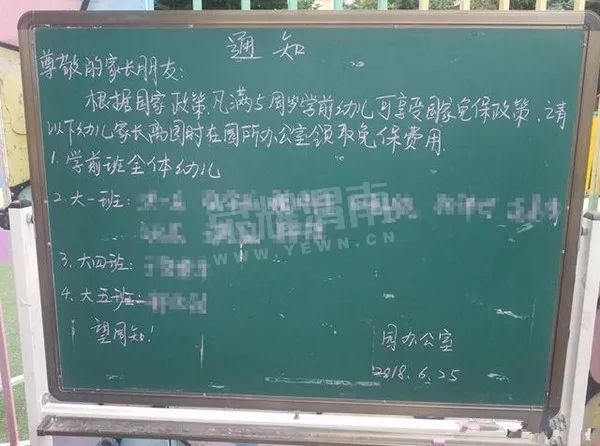 通知
尊敬的家长朋友:
根据国家政策,凡满5周岁学前幼儿可享受国家免保政策,请
以下幼儿家长离园时在园所办公室领取免保费用.
1.学前班全体幼儿
2.大一班:
3.大四班:
4.大五班:
望周知!
园办公室
2018.6.25
荣耀渭南
WWW.YEWN.CN